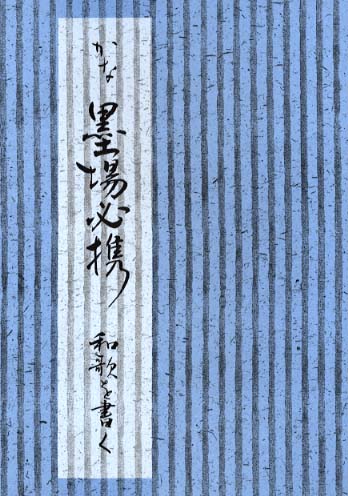 かな 墨場必携 和歌を書く